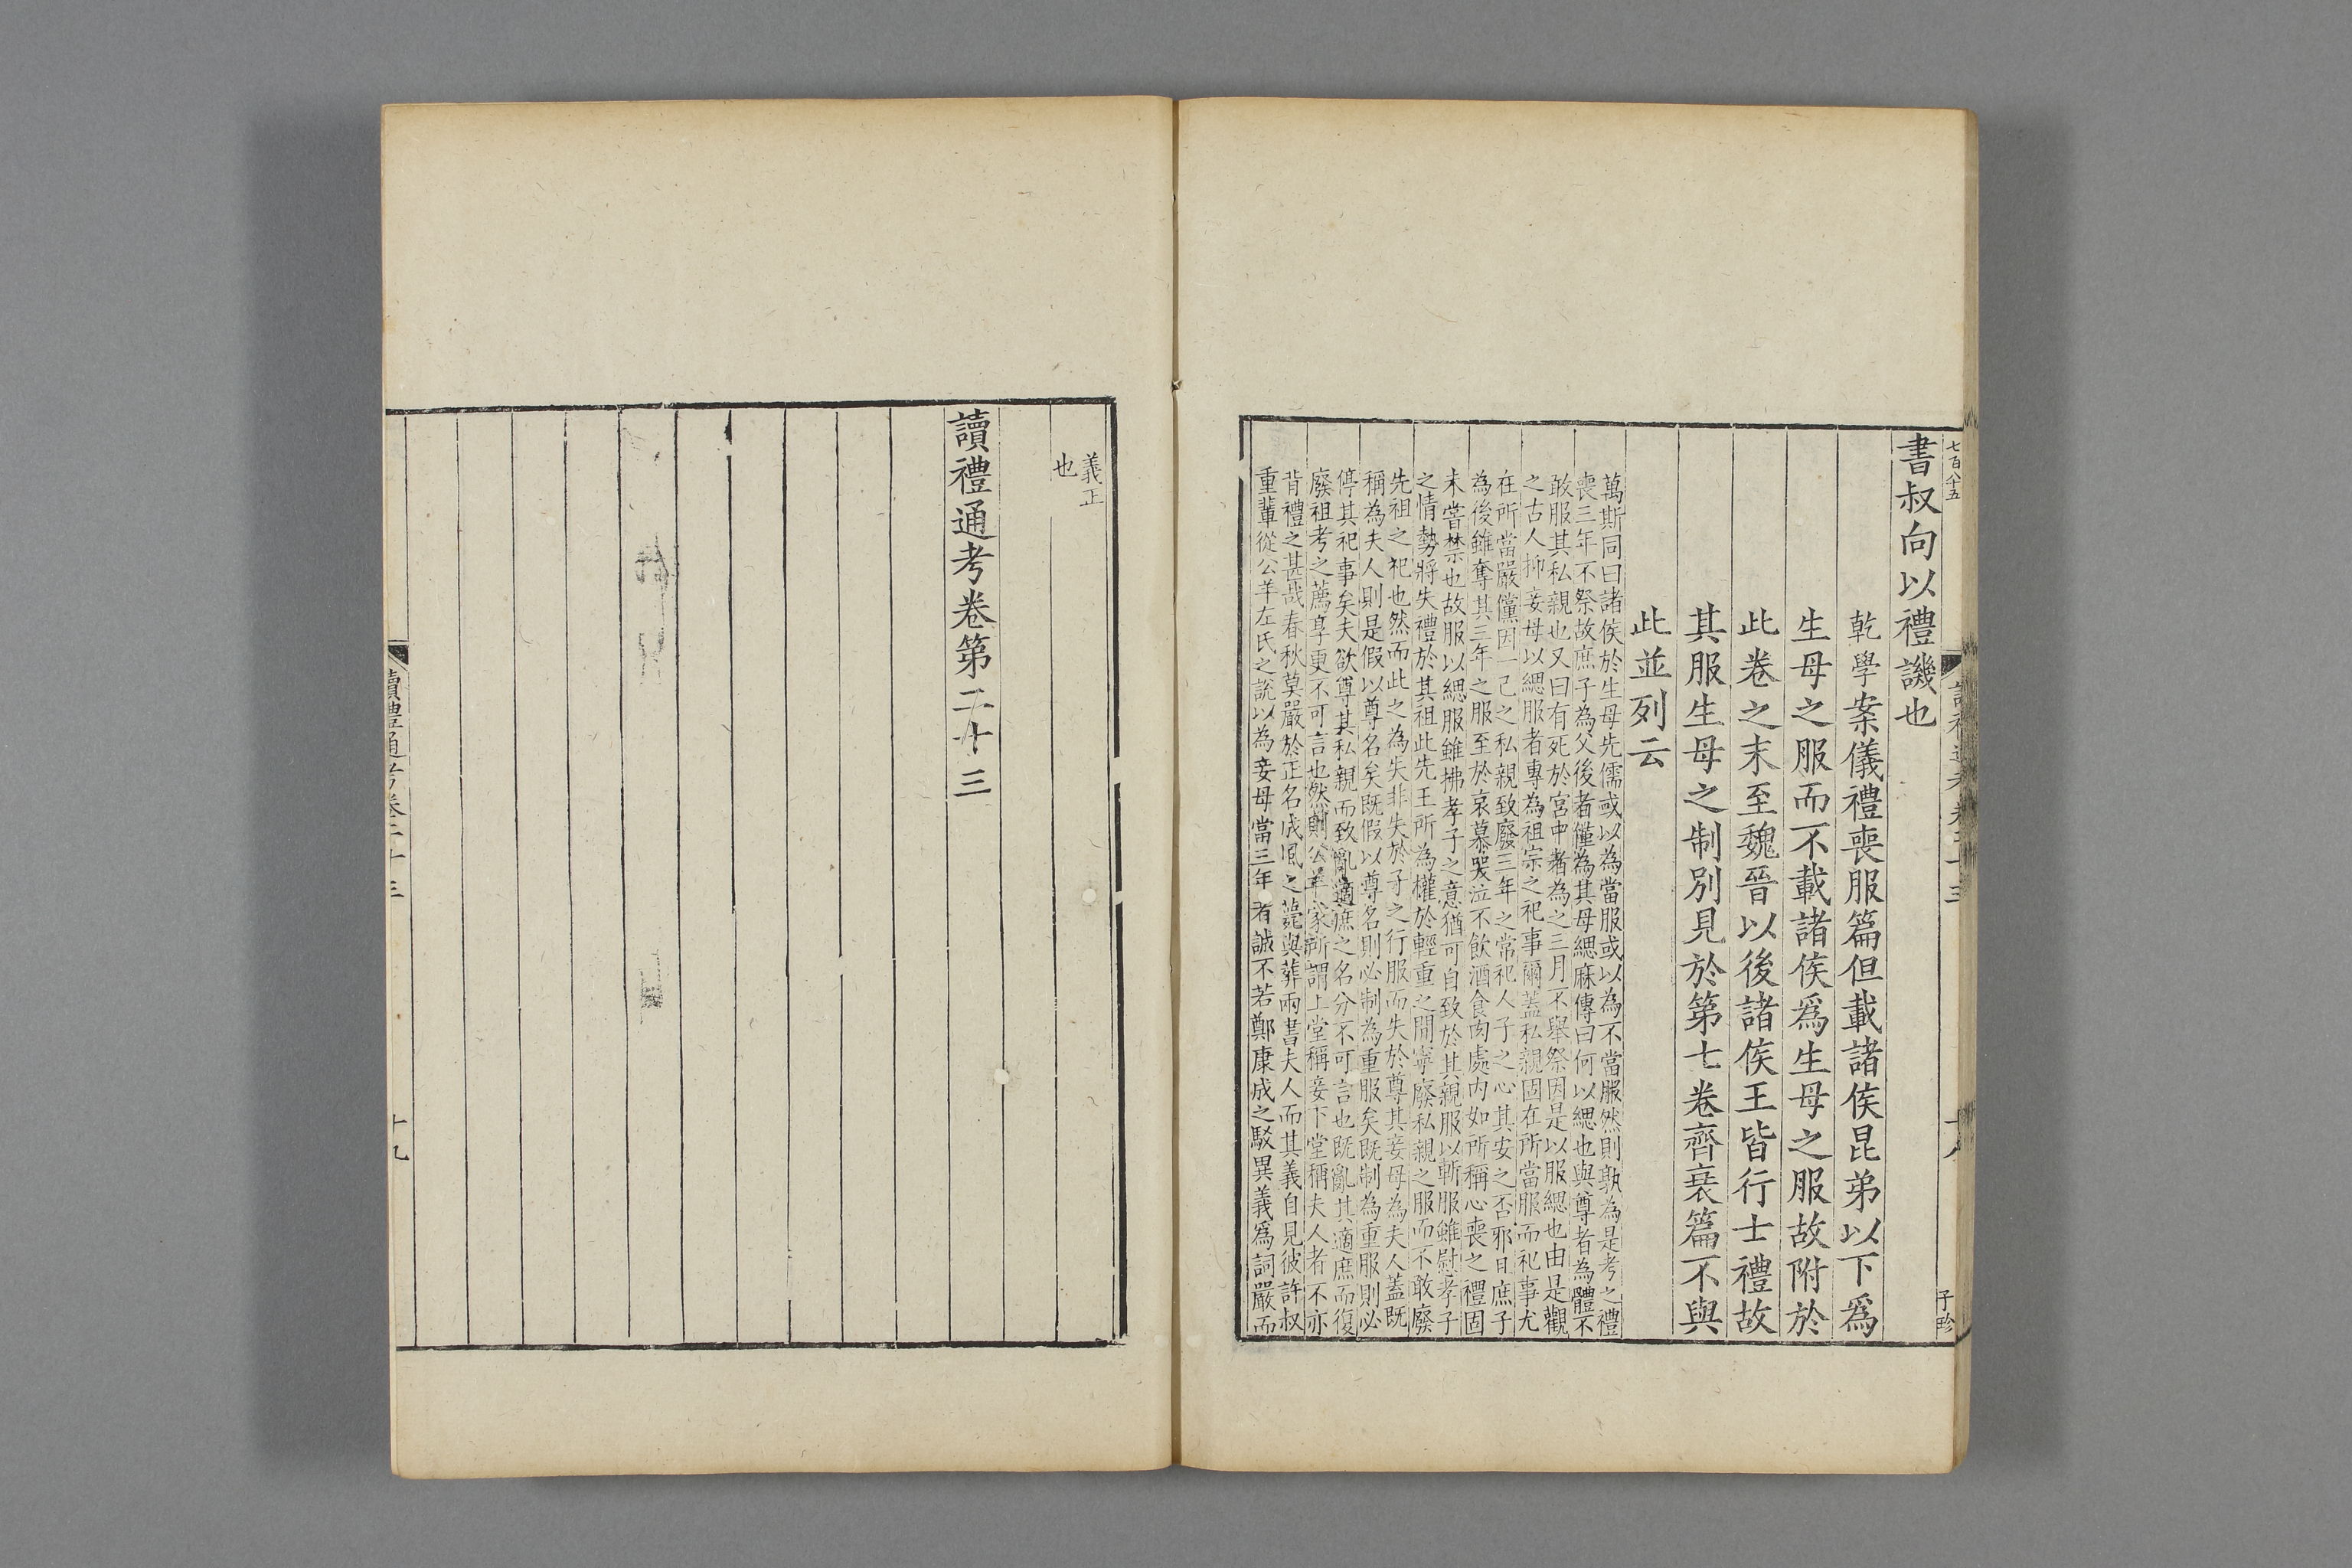 七百八十五
書叔向以禮譏也
乾學案儀禮喪服篇但載諸侯昆弟以下爲
生母之服而不載諸侯爲生母之服故附於
此卷之末至魏晉以後諸侯王皆行士禮故
其服生母之制別見於第七卷齊衰篇不與
此並列云
萬斯同曰諸侯於生母先儒或以為當服或以為不當服然則孰為是考之禮
喪三年不祭故庶子為父後者僅為其母緦麻傳曰何以緦也與尊者為體不
敢服其私親也又曰有死於宮中者為之三月不舉祭因是以服緦也由是觀
之古人抑妾母以緦服者專為祖宗之祀事爾蓋私親固在所當服而祀事尤
在所當嚴儻因一己之私親致廢三年之常祀人子之心其安之否邪且庶子
為後雖奪其三年之服至於哀慕哭泣不飲酒食肉處内如所稱心喪之禮固
未嘗禁也故服以緦服雖拂孝子之意猶可自致於其親服以斬服雖慰孝子
之情勢將失禮於其祖此先王所為權於輕重之間寧廢私親之服而不敢廢
先祖之祀也然而此之為失非失於子之行服而失於尊其妾母為夫人蓋既
稱為夫人則是假以尊名矣既假以尊名則必制為重服矣既制為重服則必
停其祀事矣夫欲尊其私親而致亂適庶之名分不可言也既亂其適庶而復
廢祖考之薦享更不可言也然則公羊家所謂上堂稱妾下堂稱夫人者不亦
背禮之甚哉春秋莫嚴於正名成風之薨與葬兩書夫人而其義自見彼許叔
重輩從公羊左氏之說以為妾母當三年者誠不若鄭康成之駁異義爲詞嚴而
讀禮通考卷二十三
十八
子珍
義正
也
讀禮通考卷第二十三
讀禮通考卷二十三
十九